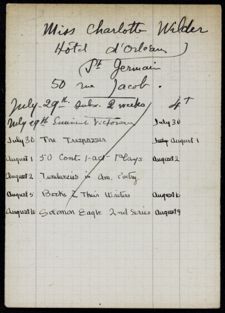 Miss Charlotte Wilder
Hôtel d'Orléans
(St Germain
50 rue Jacob.
July-29th. Subs. 2 weeks / 4 +
July 29th Eminent Victorians July 30
July 30 The Trespasser July August 1
August 1 50 Cont. 1-act Plays August 2
August 2 Tendencies in Am. Poetry August 5
August 5 Books & Their Writers August 6
August 6 Solomon Eagle 2nd Series August 9